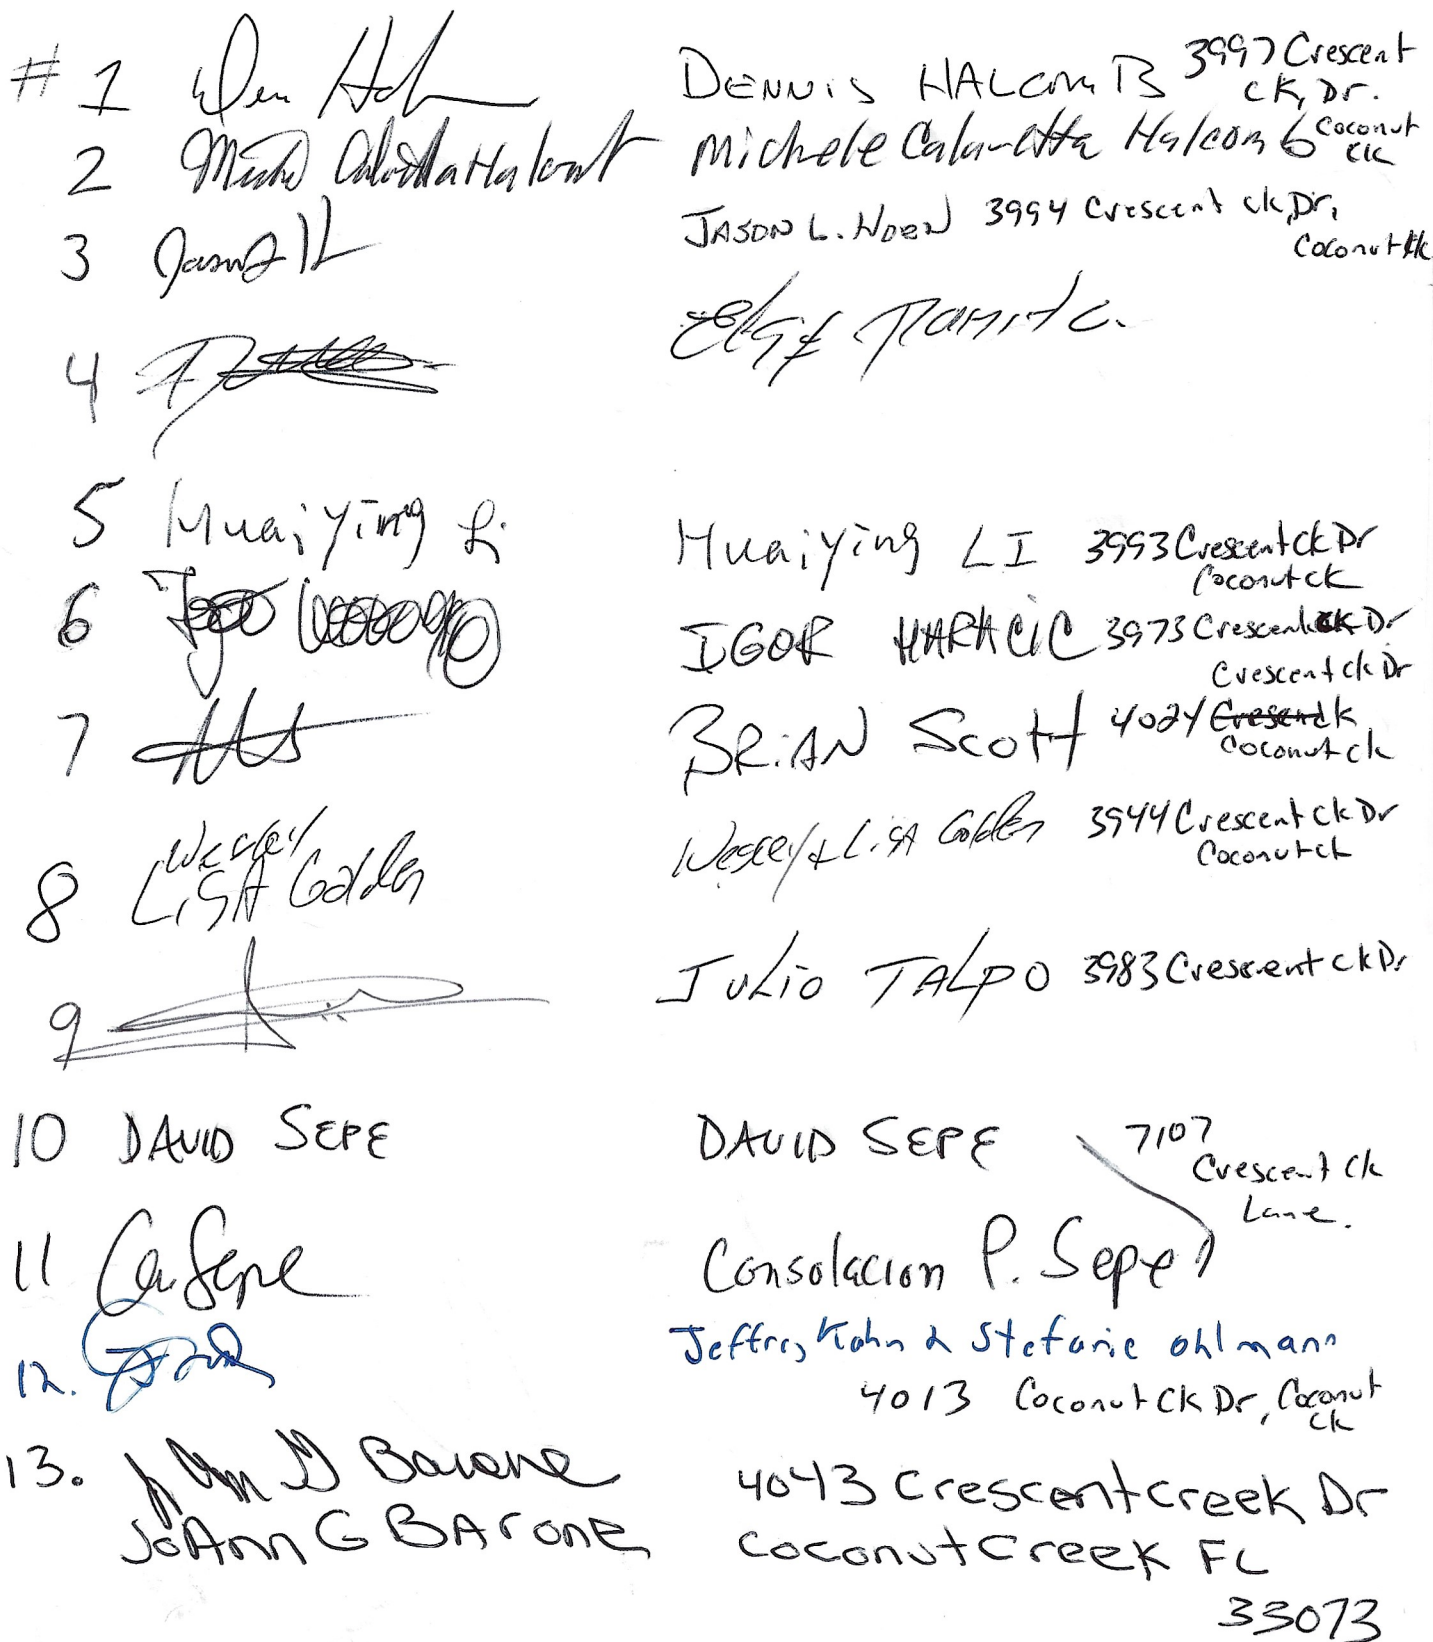 #1 DENNIS HALCOMB 3997 Crescent
ck, Dr.
2 Michele Calametta Halcomb Coconut
ck
3 JASON L. HOEN 3994 Crescent ck, Dr,
Coconut ck
4
5 Huaiying Li Huaiying LI 3993 Crescent ck Dr
Coconut ck
6 IGOR HARACIC 3973 Crescent ck Dr
Crescent ck Dr
7 BRIAN SCOTT 4024
Coconut ck
8 Wesley LISA Golden Wesley & LISA Golden 3944 Crescent ck Dr
Coconut ck
9 JULIO TALPO 3983 Crescent ck Dr
10 DAVID SEPE DAVID SEPE 7107
Crescent ck
Lane.
11 Sepe Consolacion P. Sepe
12. Jeffrey Kahn & Stefanie Ohlmann
4013 Coconut Ck Dr, Coconut
ck
13. JoAnn G Barone 4043 Crescent Creek Dr
JoAnn G BArone Coconut Creek FL
33073